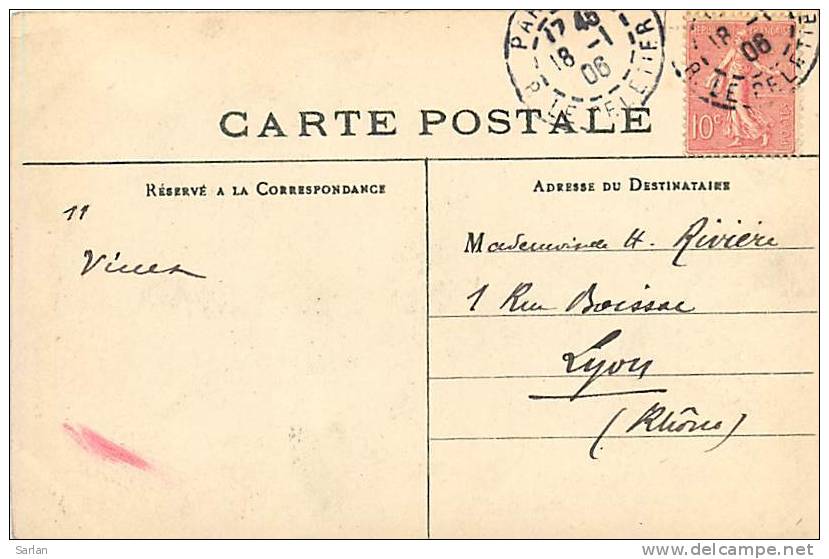 PAR
17 45
18 -1
06
R. LE PELETIER
18 -1
06
R. LE PELETIE
10c
CARTE POSTALE
RÉSERVÉ A LA CORRESPONDANCE
ADRESSE DU DESTINATAIRE
11
Mademoiselle H. Rivière
1 Rue Boissac
Lyon
(Rhône)
Sarlan
delcampe.net